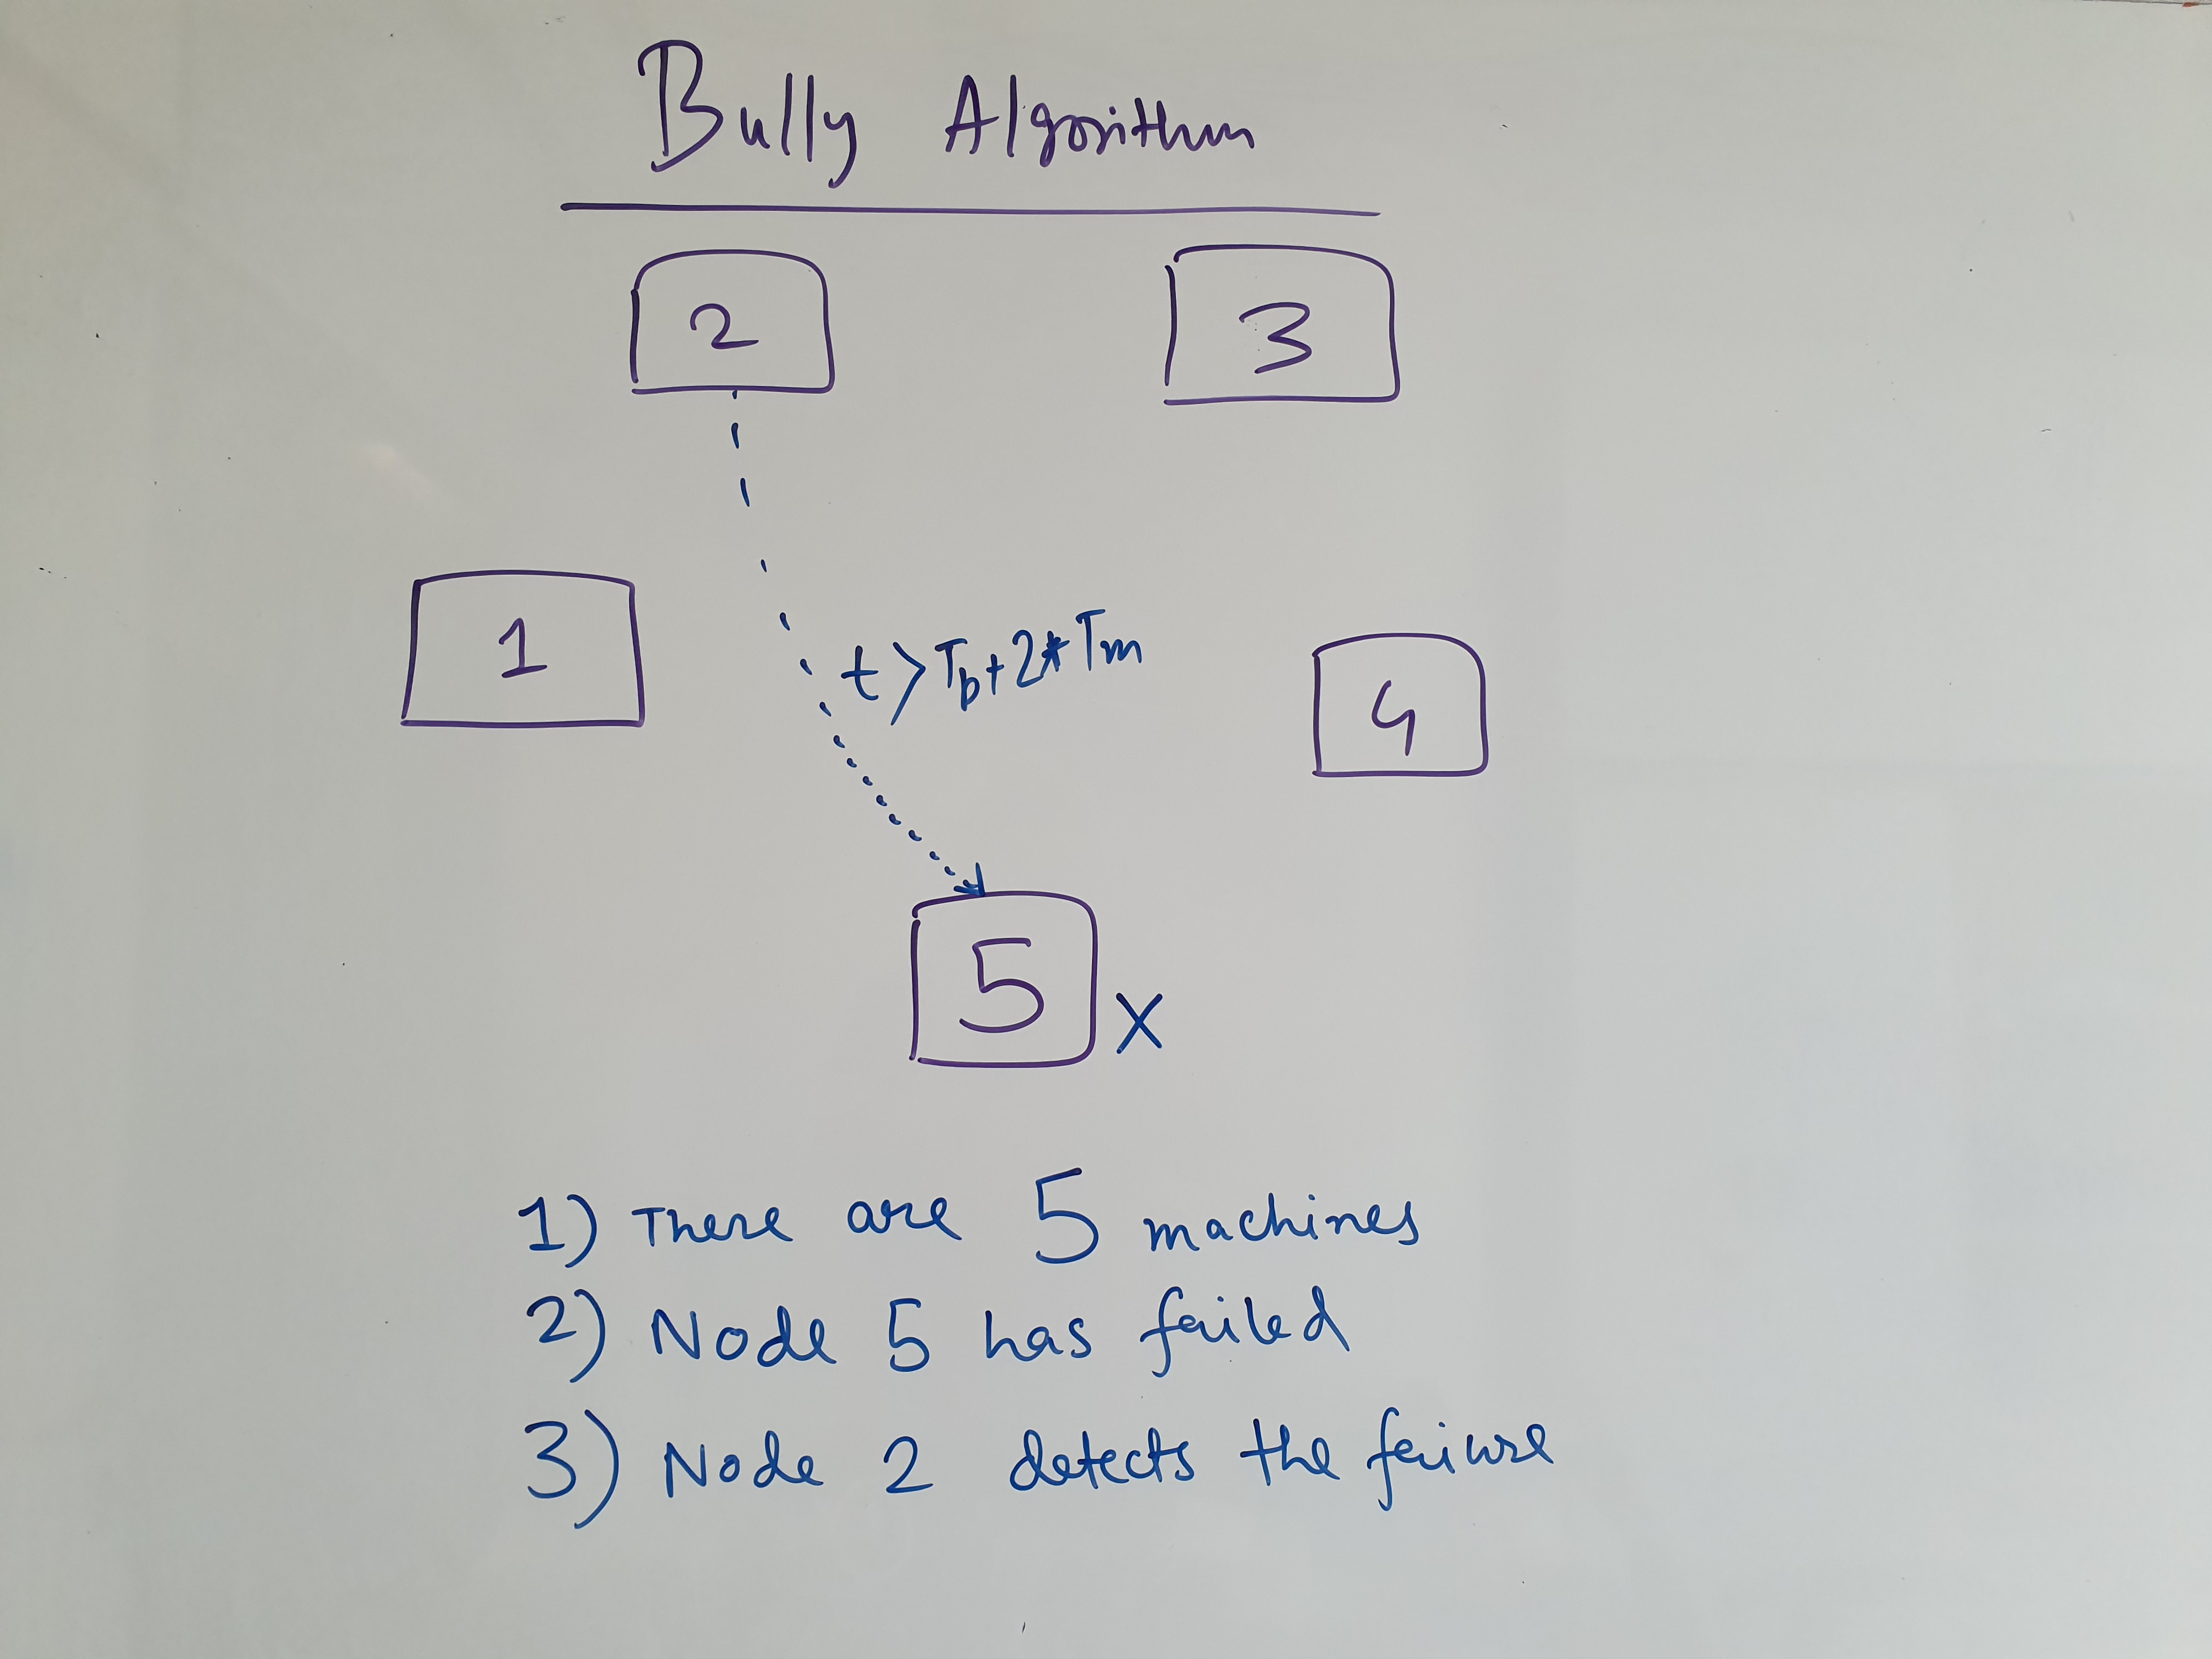 Bully Algorithm
2
3
1
t > Tp + 2 * Tm
4
5
X
1) There are 5 machines
2) Node 5 has failed
3) Node 2 detects the faiure